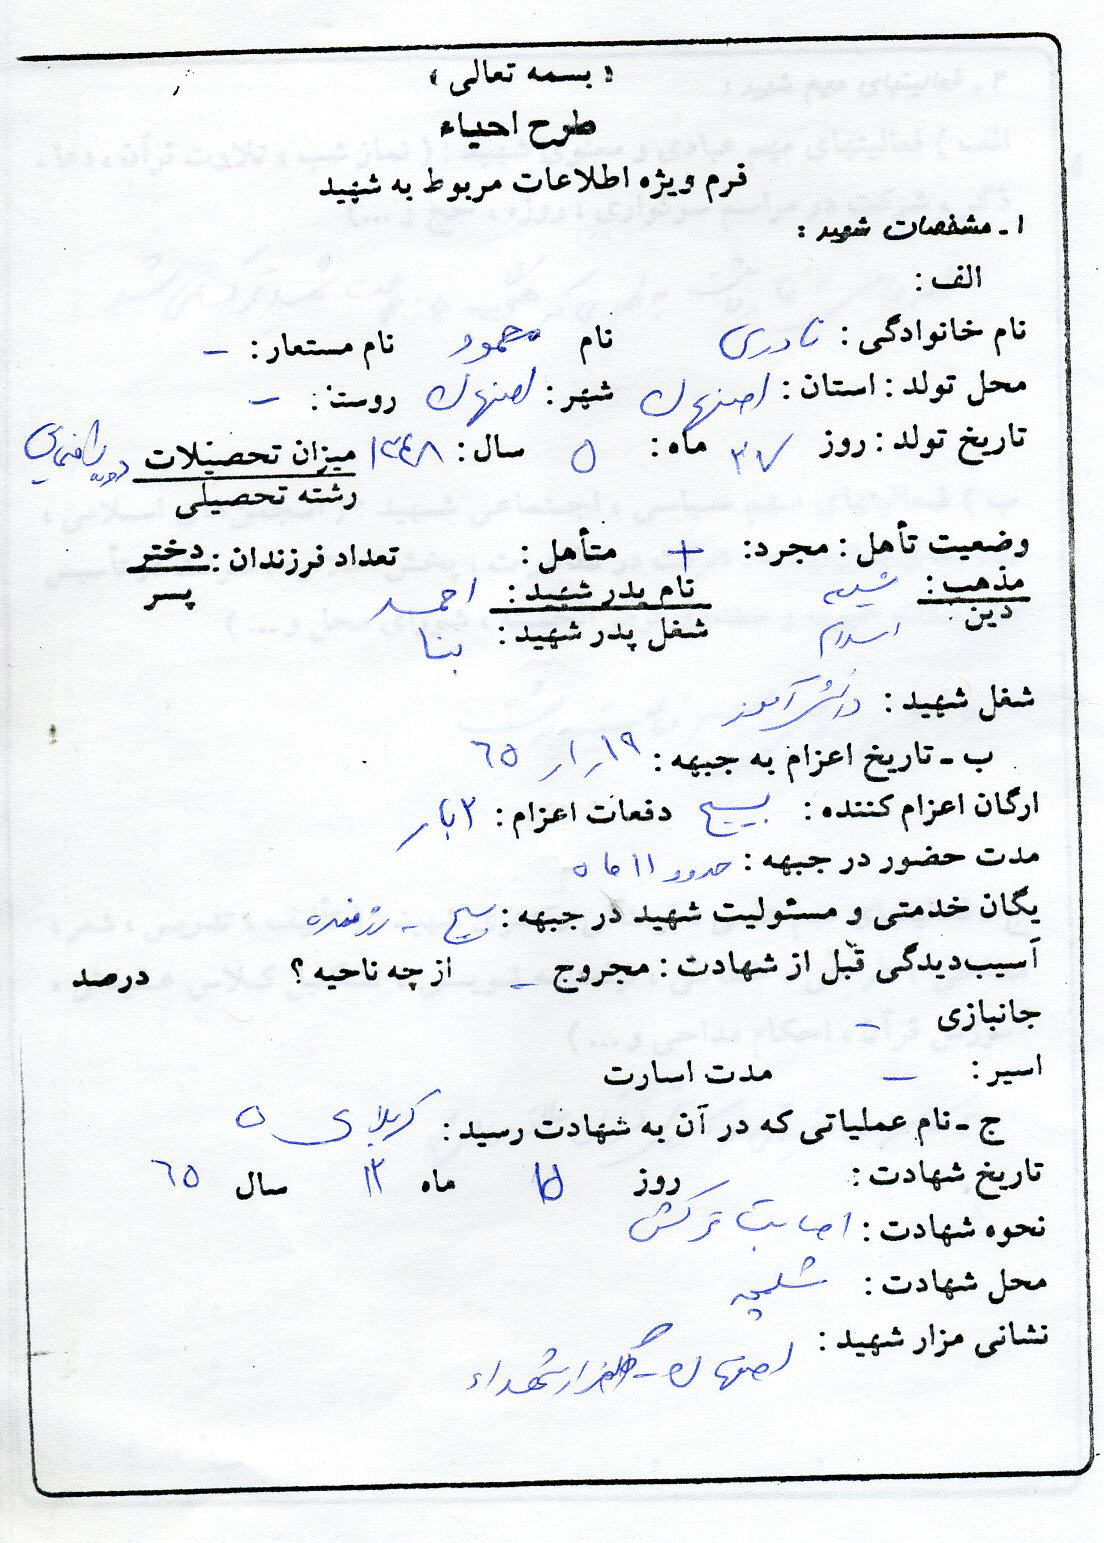 « بسمه تعالی »
طرح احیاء
فرم ویژه اطلاعات مربوط به شهید
۱ـ مشخصات شهید :
الف :
نام خانوادگی : نادری نام محمود نام مستعار : –
محل تولد : استان : اصفهان شهر : اصفهان روستا : –
تاریخ تولد : روز ۲۷ ماه : ۵ سال : ۱۳۴۸ میزان تحصیلات دوم راهنمایی
رشته تحصیلی
وضعیت تأهل : مجرد : + متأهل : تعداد فرزندان : دختر
پسر
مذهب : شیعه نام پدر شهید : احمد
دین اسلام شغل پدر شهید : بنا
شغل شهید : دانش آموز
ب ـ تاریخ اعزام به جبهه : ۱۹ ر ۱ ر ۶۵
ارگان اعزام کننده : بسیج دفعات اعزام : ۲ بار
مدت حضور در جبهه : حدود ۱۱ ماه
یگان خدمتی و مسئولیت شهید در جبهه : بسیج - رزمنده
آسیب‌دیدگی قبل از شهادت : مجروح – از چه ناحیه ؟ درصد
جانبازی –
اسیر : – مدت اسارت
ج ـ نام عملیاتی که در آن به شهادت رسید : کربلای ۵
تاریخ شهادت : روز ۱۵ ماه ۱۲ سال ۶۵
نحوه شهادت : اصابت ترکش
محل شهادت : شلمچه
نشانی مزار شهید : اصفهان - گلزار شهداء